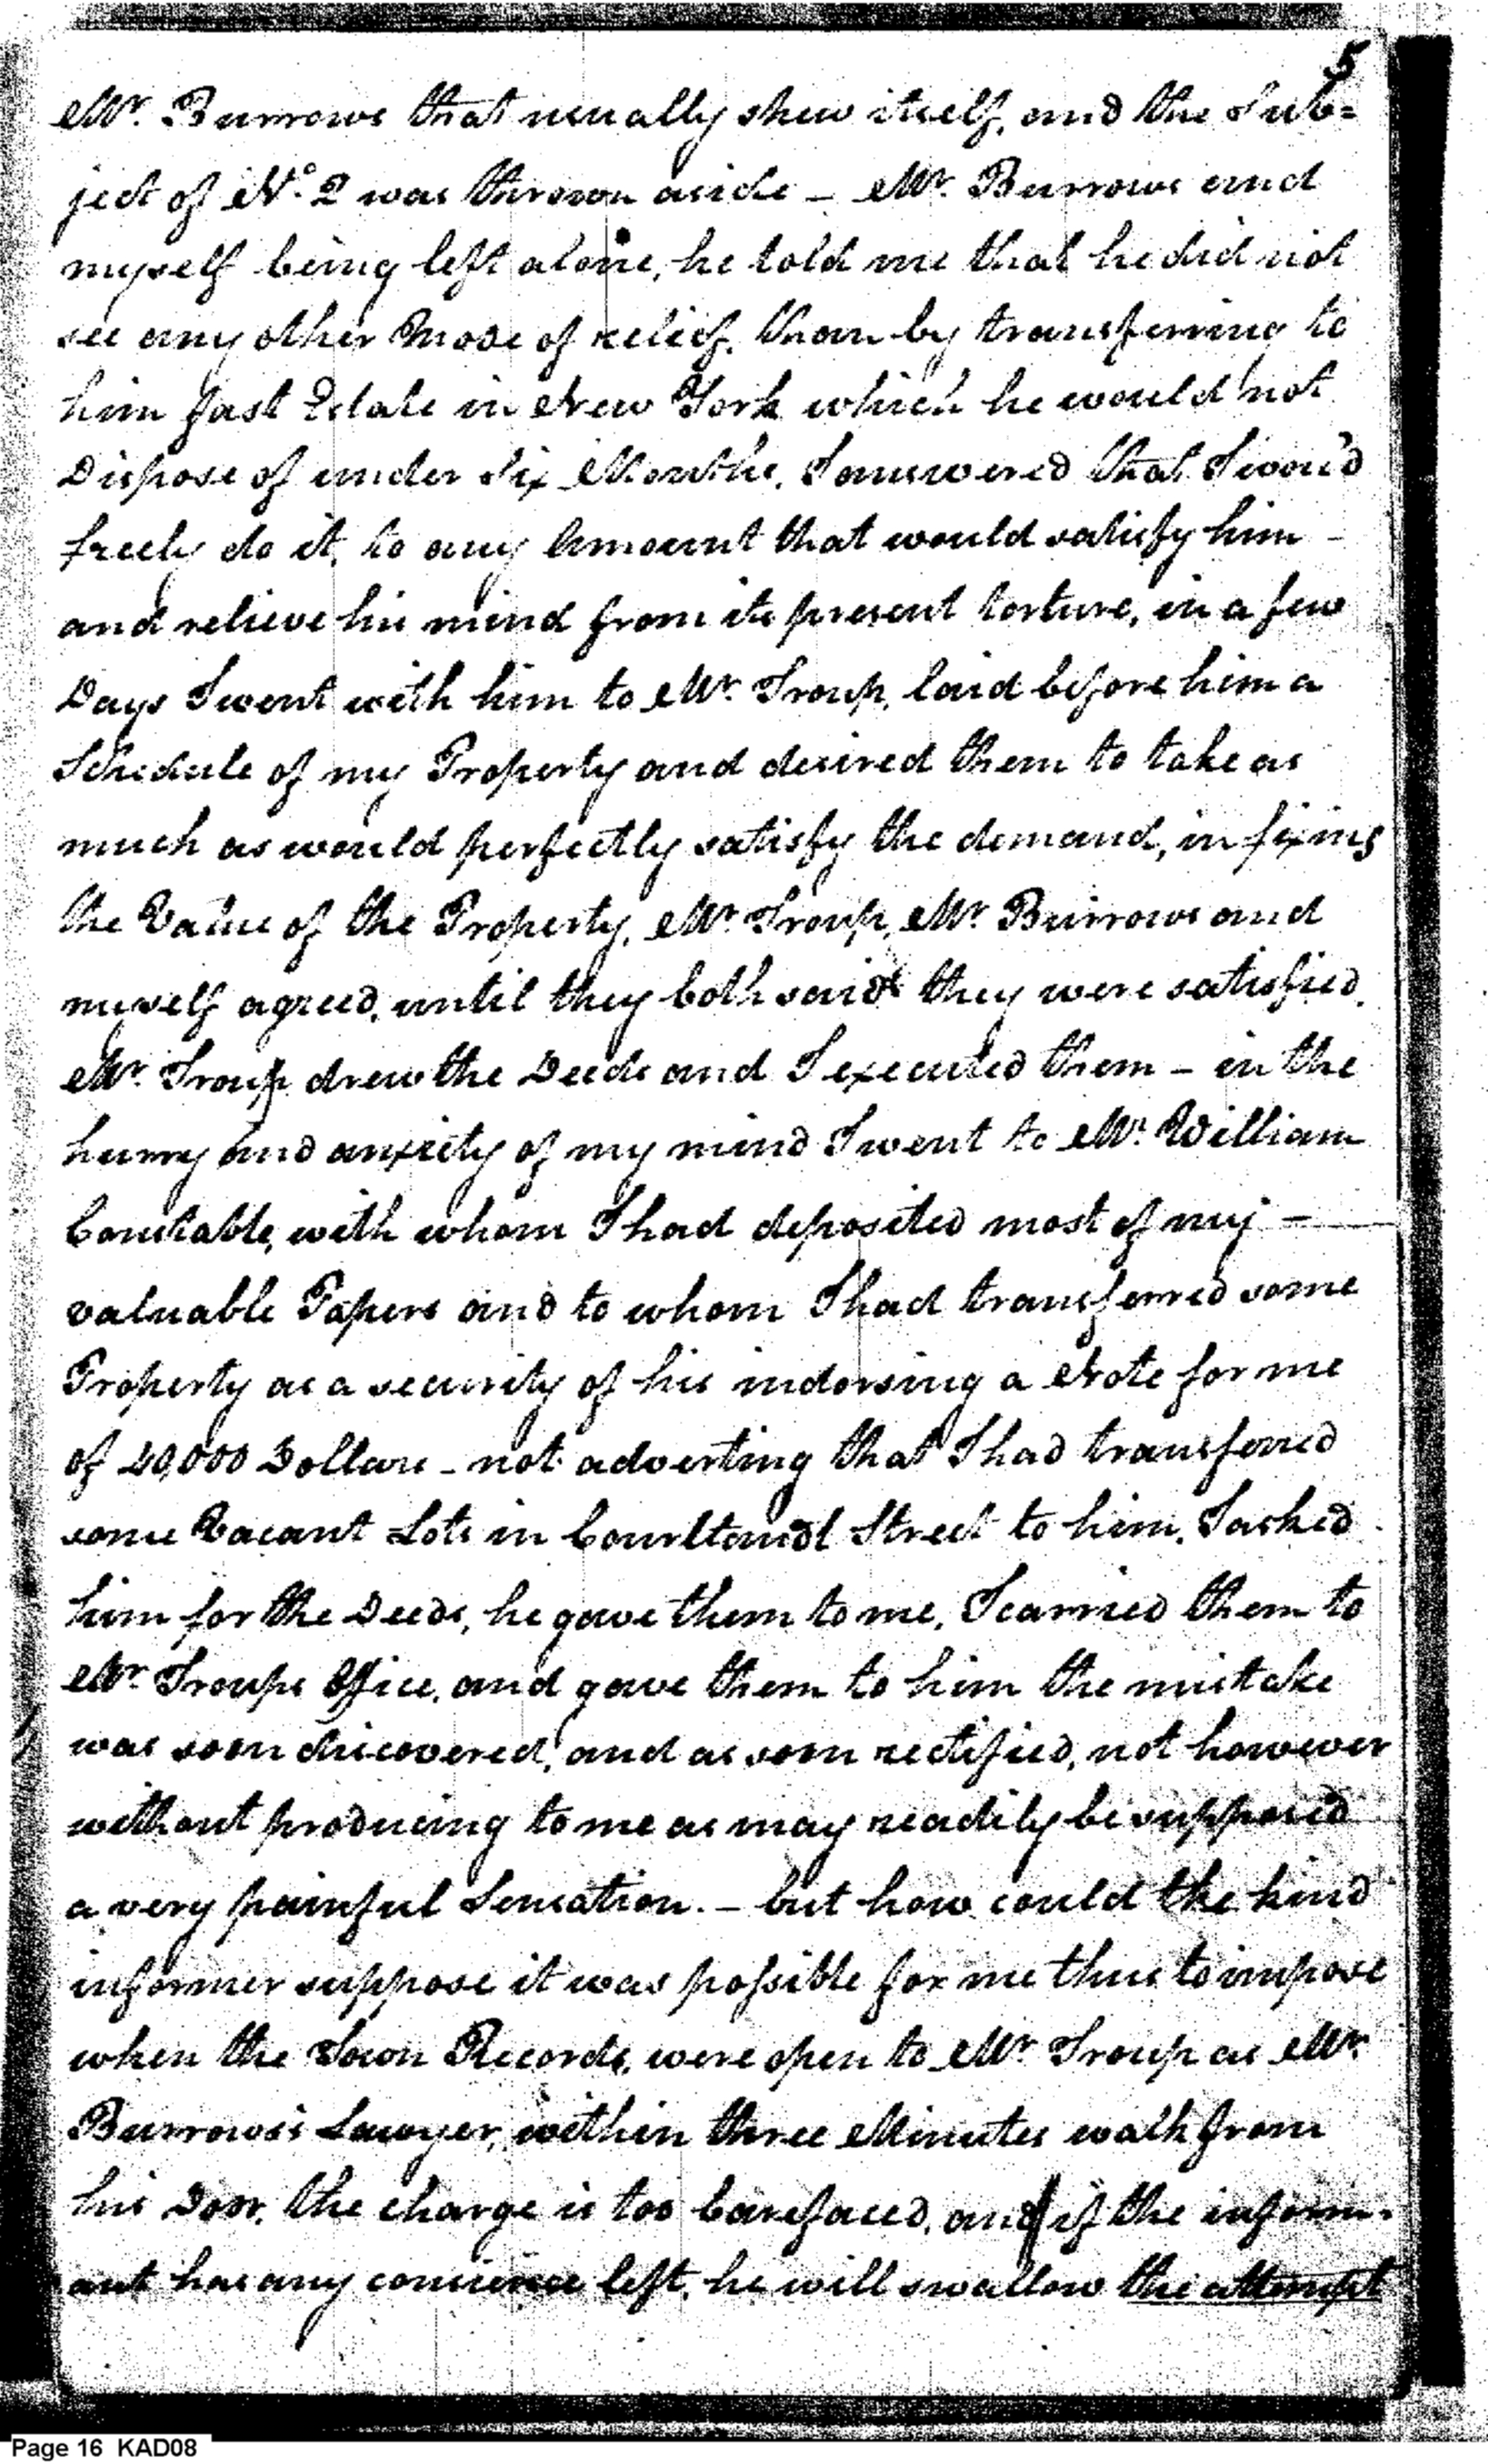 5
Mr. Burrows that usually shew itself, and the Sub=
ject of No. 2 was thrown aside — Mr. Burrows and
myself being left alone, he told me that he did not
see any other mode of relief, than by transferring to
him fast Estate in New York which he would not
Dispose of under Six Months, I answered that I wou'd
freely do it, to any Amount that would satisfy him —
and relieve his mind from its present torture, in a few
Days I went with him to Mr. Troup, laid before him a
Schedule of my Property and desired them to take as
much as would perfectly satisfy the demand, in fixing
the Value of the Property, Mr. Troup, Mr. Burrows and
myself agreed, until they both said they were satisfied,
Mr. Troup drew the Deeds and I executed them — in the
hurry and anxiety of my mind I went to Mr. William
Constable, with whom I had deposited most of my —
valuable Papers and to whom I had transferred some
Property as a security of his indorsing a Note for me
of 40,000 Dollars — not adverting that I had transferred
some Vacant Lots in Courtlandt Street to him, I asked
him for the Deeds, he gave them to me, I carried them to
Mr. Troups Office, and gave them to him the mistake
was soon discovered, and as soon rectified, not however
without producing to me as may readily be supposed
a very painful Sensation. — but how could the kind
informer suppose it was possible for me thus to impose
when the Town Records, were open to Mr. Troup as Mr.
Burrows's Lawyer, within three Minutes walk from
his Door, the charge is too barefaced, and if the inform-
ant has any concience left, he will swallow the attempt
Page 16 KAD08